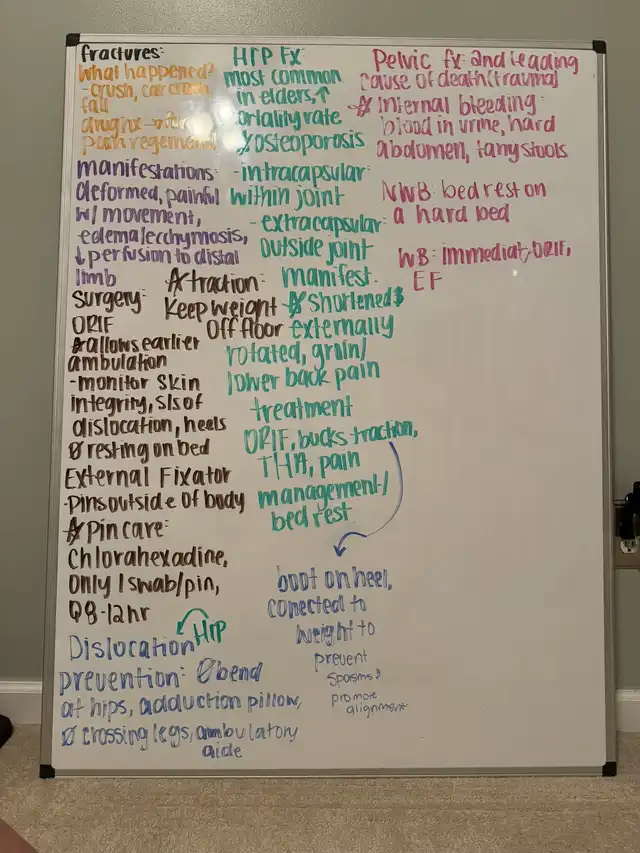 fractures:
What happened?
-crush, car crash,
fall
pain regement
manifestations:
deformed, painful
w/ movement,
edema/ecchymosis,
↓perfusion to distal
limb
Surgery:
ORIF
*allows earlier
ambulation
-monitor skin
integrity, s/s of
dislocation, heels
Ø resting on bed
External Fixator
-pins outside of body
*pin care:
Chlorahexadine,
Only 1 swab/pin,
Q8-12hr
*traction:
Keep weight
Off floor
Dislocation HIP
prevention: Øbend
at hips, adduction pillow,
Ø crossing legs, ambulatory
aide
HIP Fx
most common
in elders, ↑
ortality rate
osteoporosis
-intracapsular:
within joint
-extracapsular:
Outside joint
manifest.
*shortened &
externally
rotated, groin/
lower back pain
treatment
ORIF, bucks traction,
THA, pain
management/
bed rest
boot on heel,
conected to
weight to
prevent
spasms &
promote
alignment
Pelvic fx: 2nd leading
cause of death (trauma)
*Internal bleeding:
blood in urine, hard
abdomen, tarry stools
NWB: bed rest on
a hard bed
WB: Immediat, ORIF,
EF